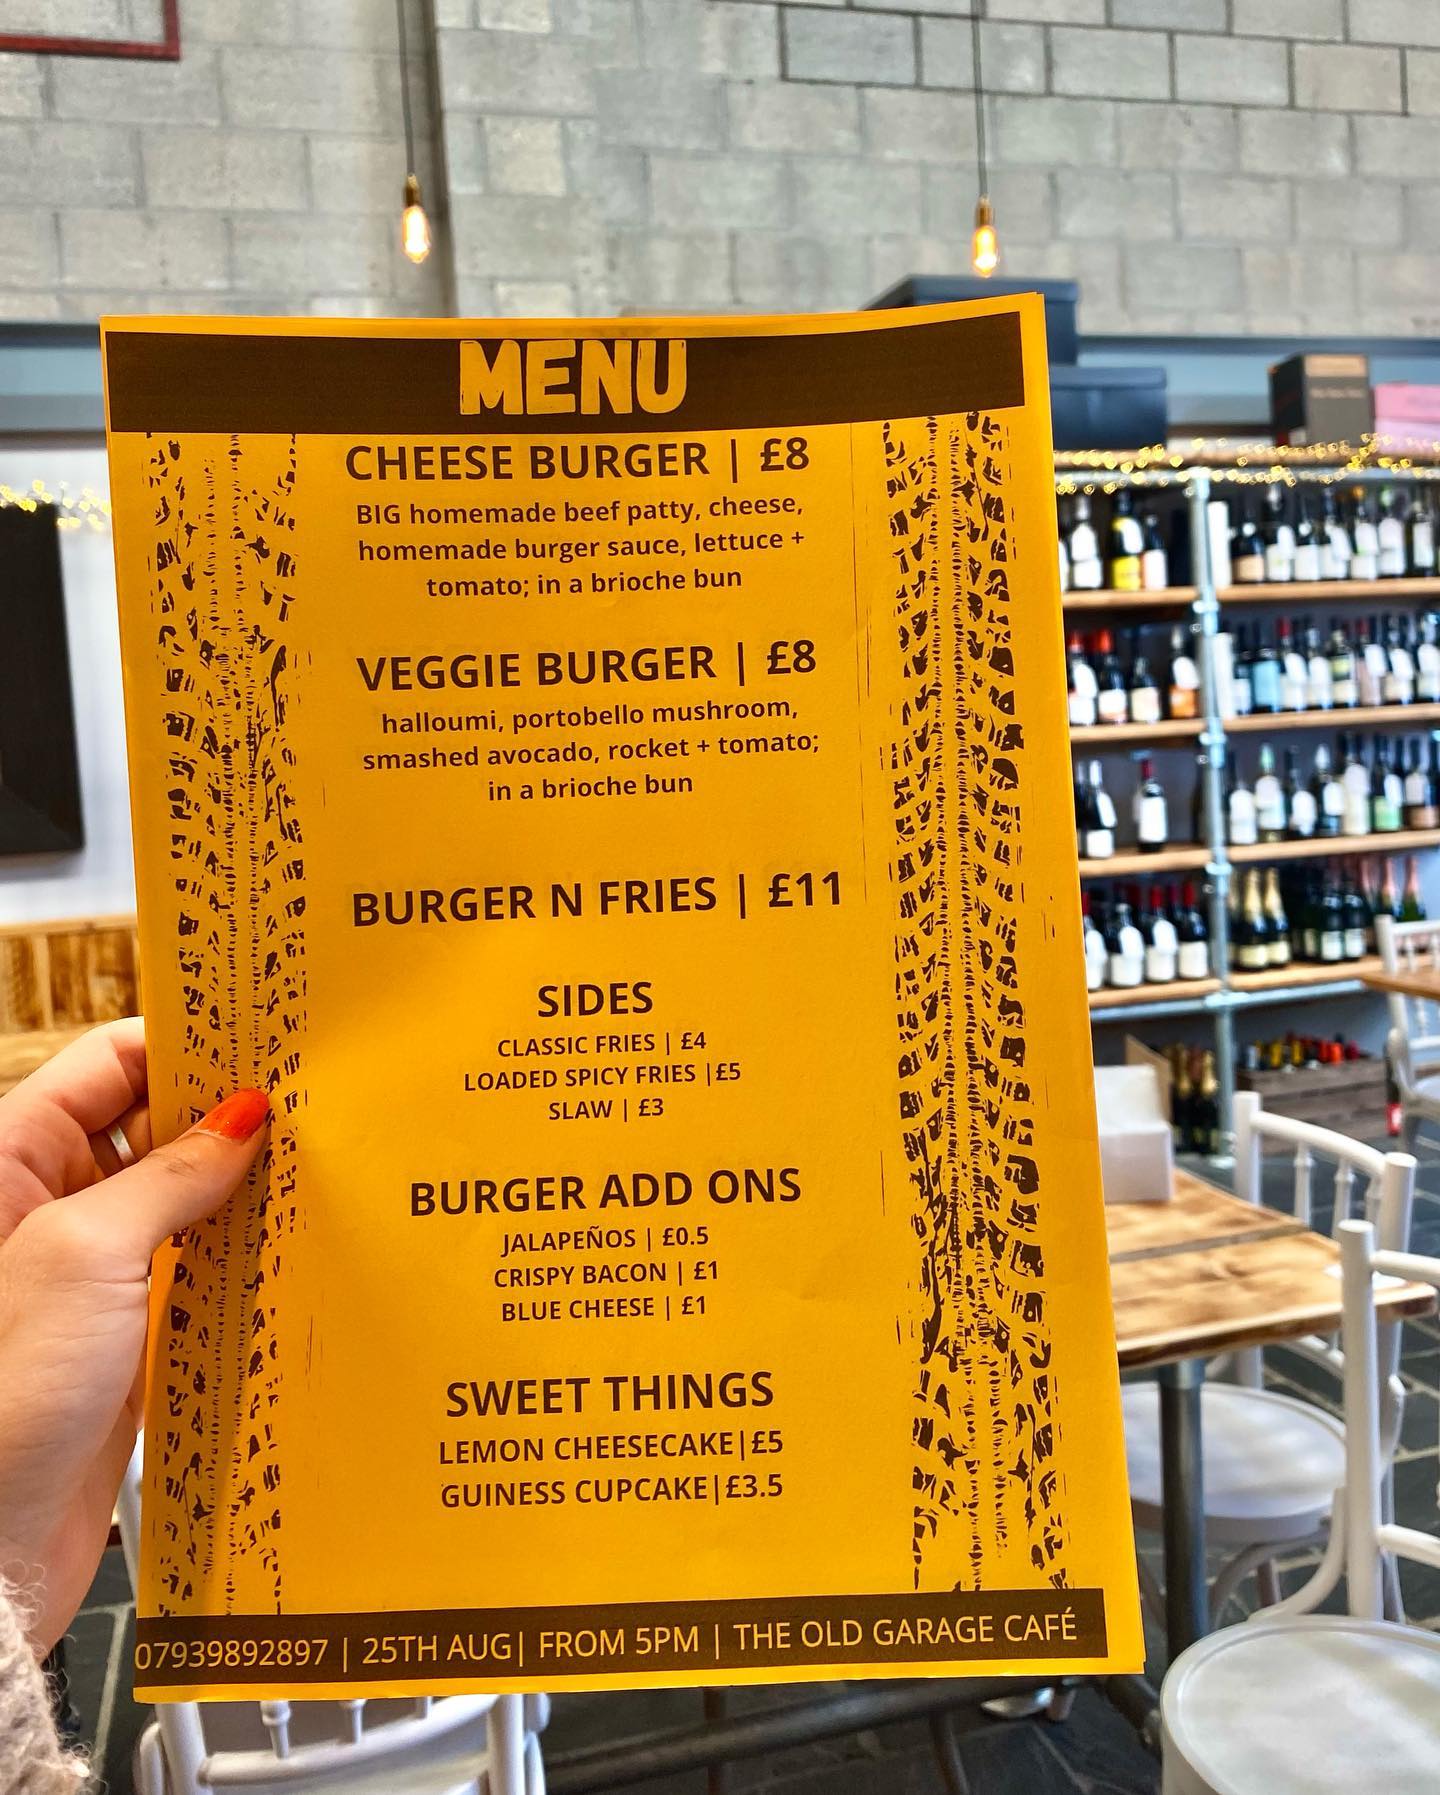 MENU
CHEESE BURGER | £8
BIG homemade beef patty, cheese,
homemade burger sauce, lettuce +
tomato; in a brioche bun
VEGGIE BURGER | £8
halloumi, portobello mushroom,
smashed avocado, rocket + tomato;
in a brioche bun
BURGER N FRIES | £11
SIDES
CLASSIC FRIES | £4
LOADED SPICY FRIES |£5
SLAW | £3
BURGER ADD ONS
JALAPEÑOS | £0.5
CRISPY BACON | £1
BLUE CHEESE | £1
SWEET THINGS
LEMON CHEESECAKE|£5
GUINESS CUPCAKE|£3.5
07939892897 | 25TH AUG| FROM 5PM | THE OLD GARAGE CAFÉ